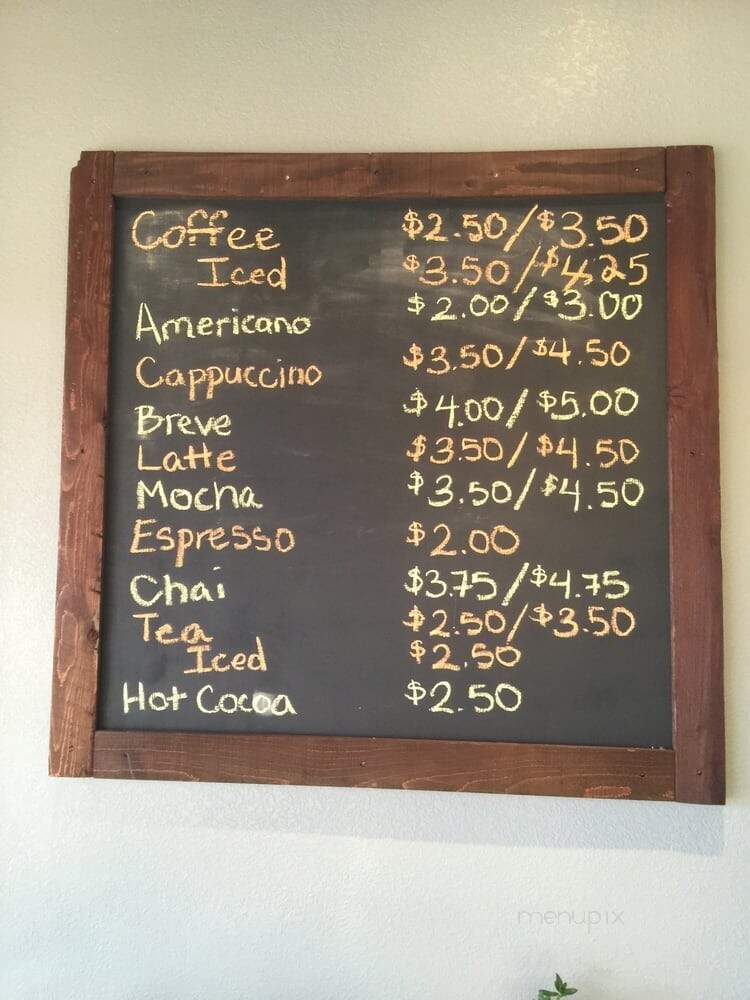 Coffee $2.50/$3.50
Iced $3.50/$4.25
Americano $2.00/$3.00
Cappuccino $3.50/$4.50
Breve $4.00/$5.00
Latte $3.50/$4.50
Mocha $3.50/$4.50
Espresso $2.00
Chai $3.75/$4.75
Tea $2.50/$3.50
Iced $2.50
Hot Cocoa $2.50
menupix